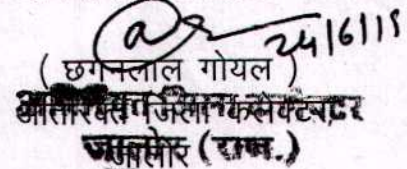 24/6/15
( छगनलाल गोयल )
अतिरिक्त जिला कलेक्टर
जालोर (राज.)